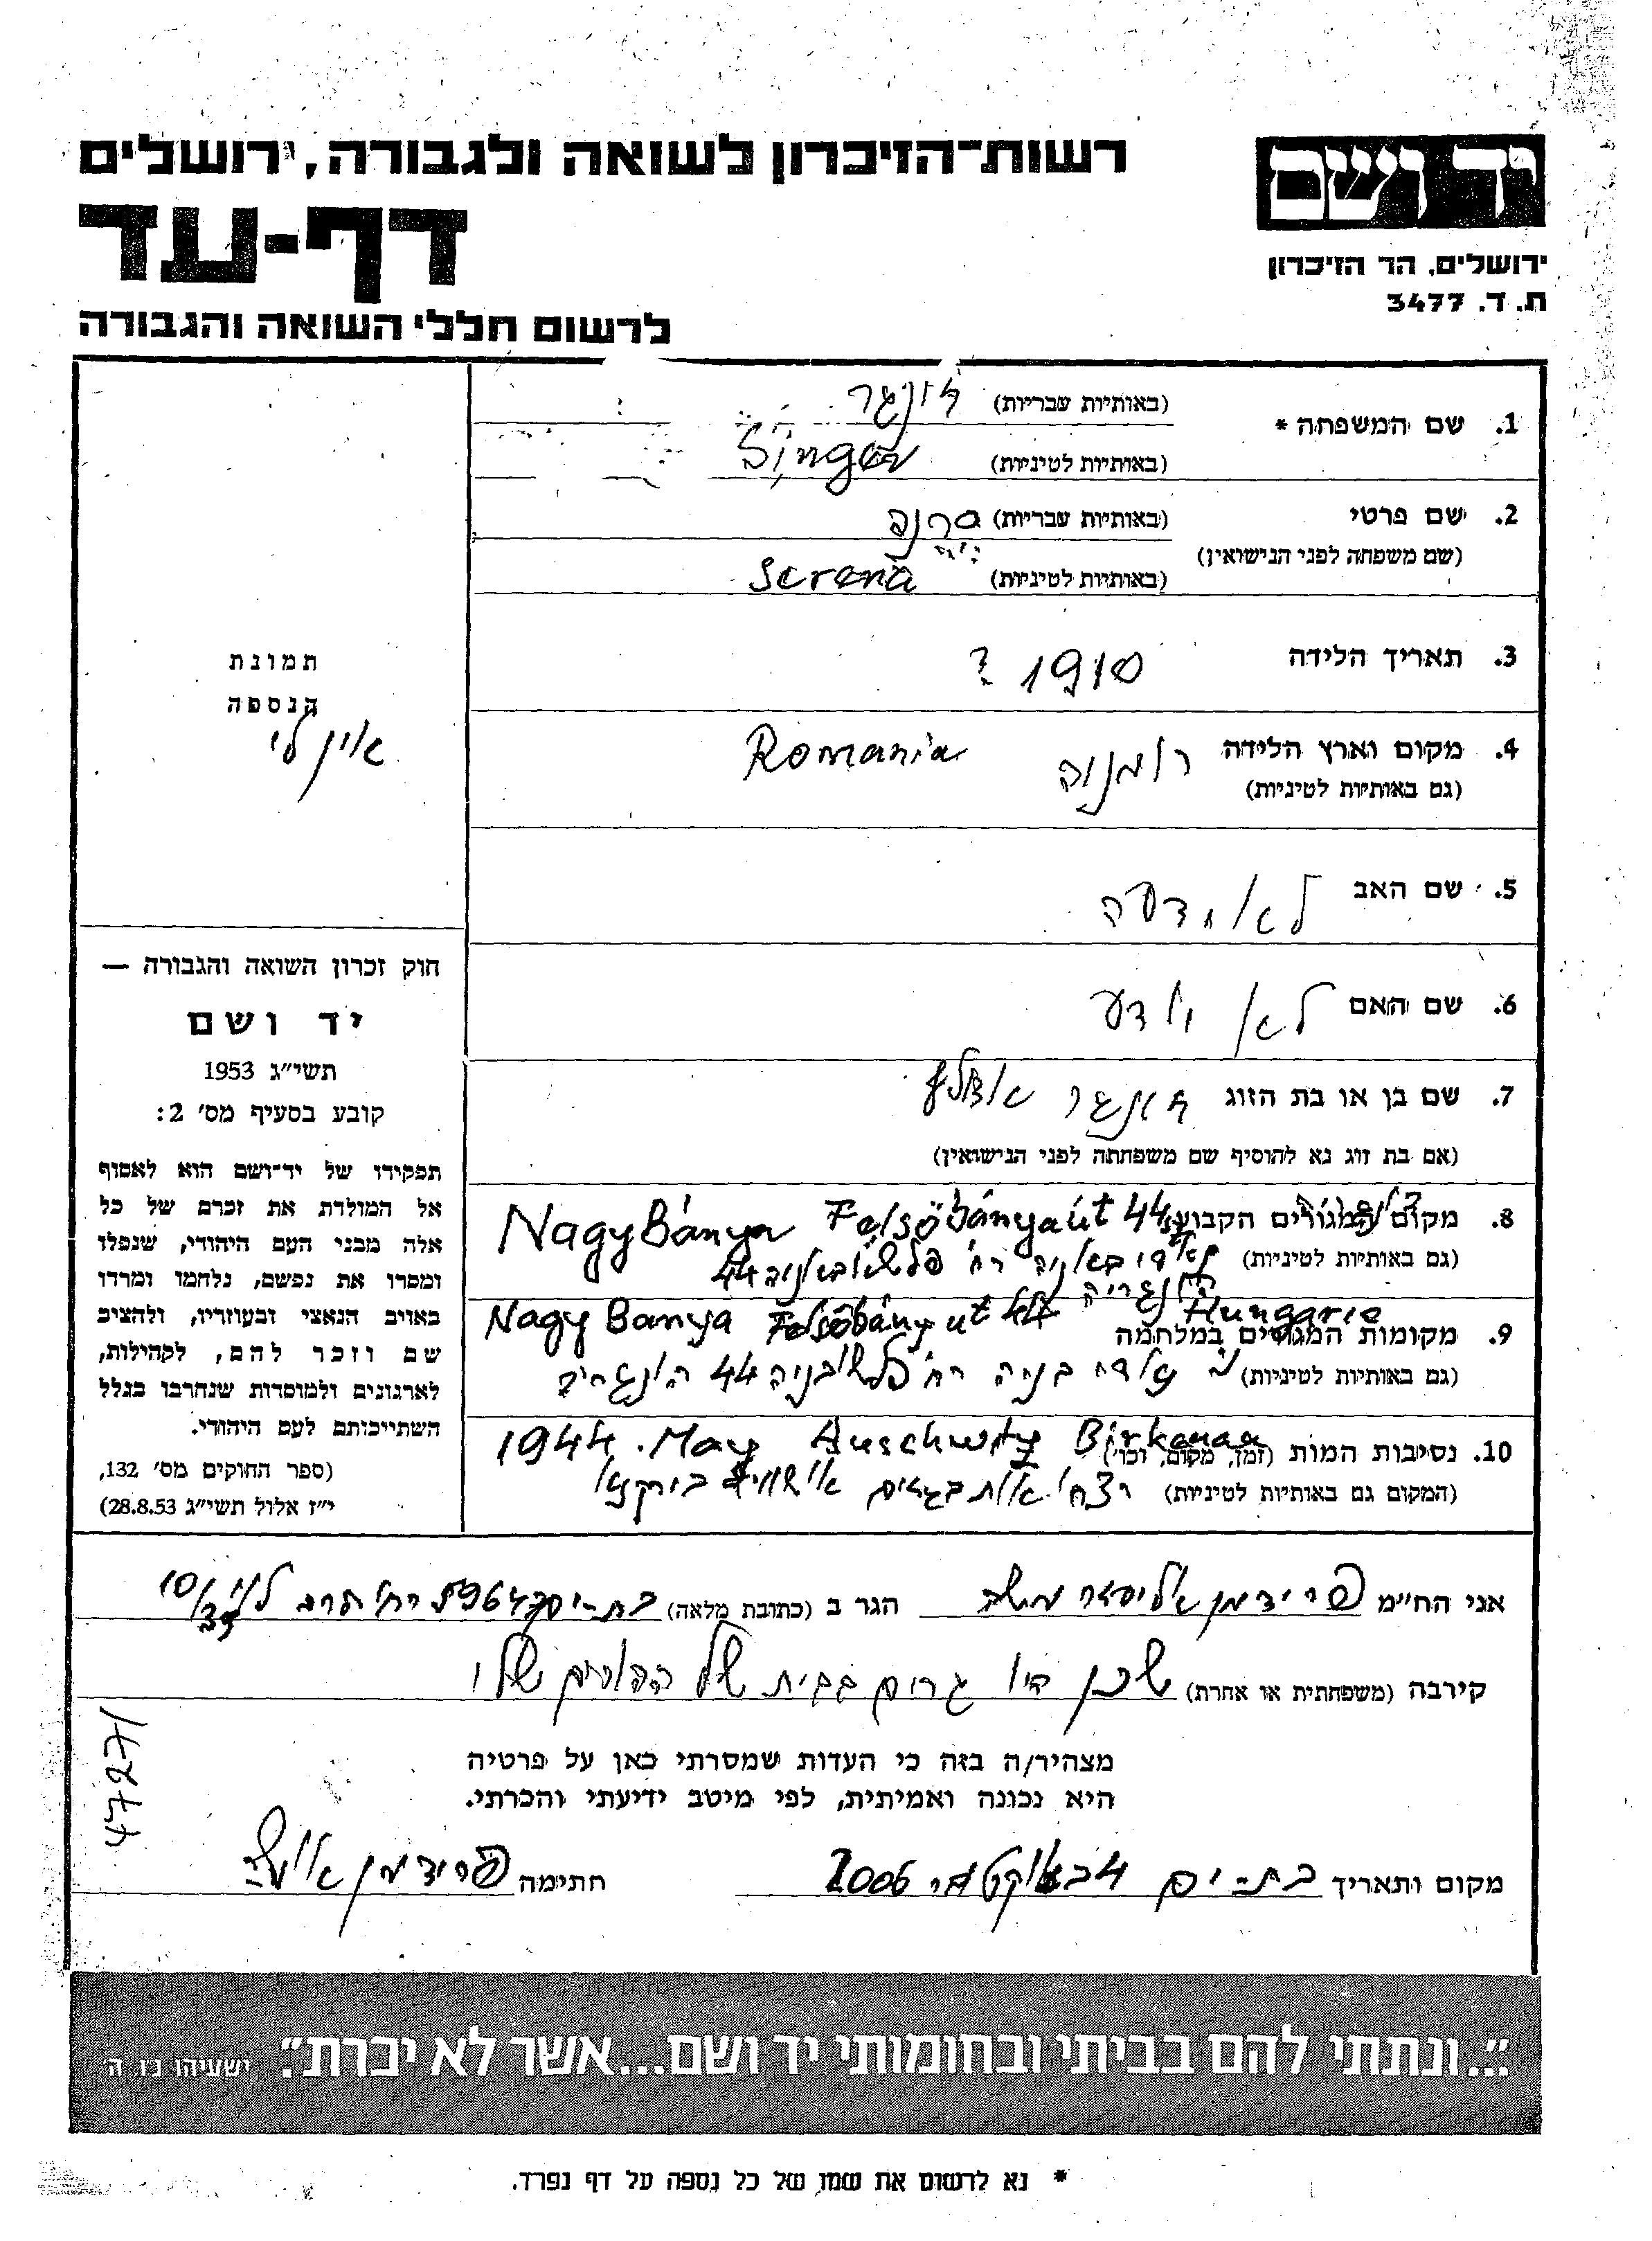 רשות-הזיכרון לשואה ולגבורה, ירושלים
דף-עד
לרשום חללי השואה והגבורה
יד ושם
ירושלים, הר הזיכרון
ת. ד. 3477
1. שם המשפחה * (באותיות עבריות) זינגר
(באותיות לטיניות) Singer
2. שם פרטי (באותיות עבריות) סרנה
(שם משפחה לפני הנישואין)
(באותיות לטיניות) Serena
3. תאריך הלידה 1910 ?
4. מקום וארץ הלידה רומניה Romania
(גם באותיות לטיניות)
5. שם האב לא ידעה
6. שם האם לא ידע
7. שם בן או בת הזוג זינגר
(אם בת זוג נא להוסיף שם משפחתה לפני הנישואין)
8. מקום המגורים הקבוע NagyBánya Felsőbányaút 44
(גם באותיות לטיניות) 44
Hungarie
9. מקומות המגורים במלחמה Nagy Banya Felsőbányut 44
(גם באותיות לטיניות) 44
10. נסיבות המות (זמן, מקום, וכו') 1944. May Auschwitz Birkenau
(המקום גם באותיות לטיניות)
תמונת
הנספה
אין לי
חוק זכרון השואה והגבורה —
יד ושם
תשי״ג 1953
קובע בסעיף מס' 2:
תפקידו של יד-ושם הוא לאסוף
אל המולדת את זכרם של כל
אלה מבני העם היהודי, שנפלו
ומסרו את נפשם, נלחמו ומרדו
באויב הנאצי ובעוזריו, ולהציב
שם וזכר להם, לקהילות,
לארגונים ולמוסדות שנחרבו בגלל
השתייכותם לעם היהודי.
(ספר החוקים מס' 132,
י״ז אלול תשי״ג 28.8.53)
אני החי״מ פרידמן הגר ב (כתובת מלאה) בת-ים
קירבה (משפחתית או אחרת) שכן היו גרים בבית של ההורים שלו
מצהיר/ה בזה כי העדות שמסרתי כאן על פרטיה
היא נכונה ואמיתית, לפי מיטב ידיעתי והכרתי.
מקום ותאריך בת-ים 4 באוקטובר 2006 חתימה פרידמן
4727/
״...ונתתי להם בביתי ובחומותי יד ושם...אשר לא יכרת״. ישעיהו נו, ה'
* נא לרשום את שמו של כל נספה על דף נפרד.